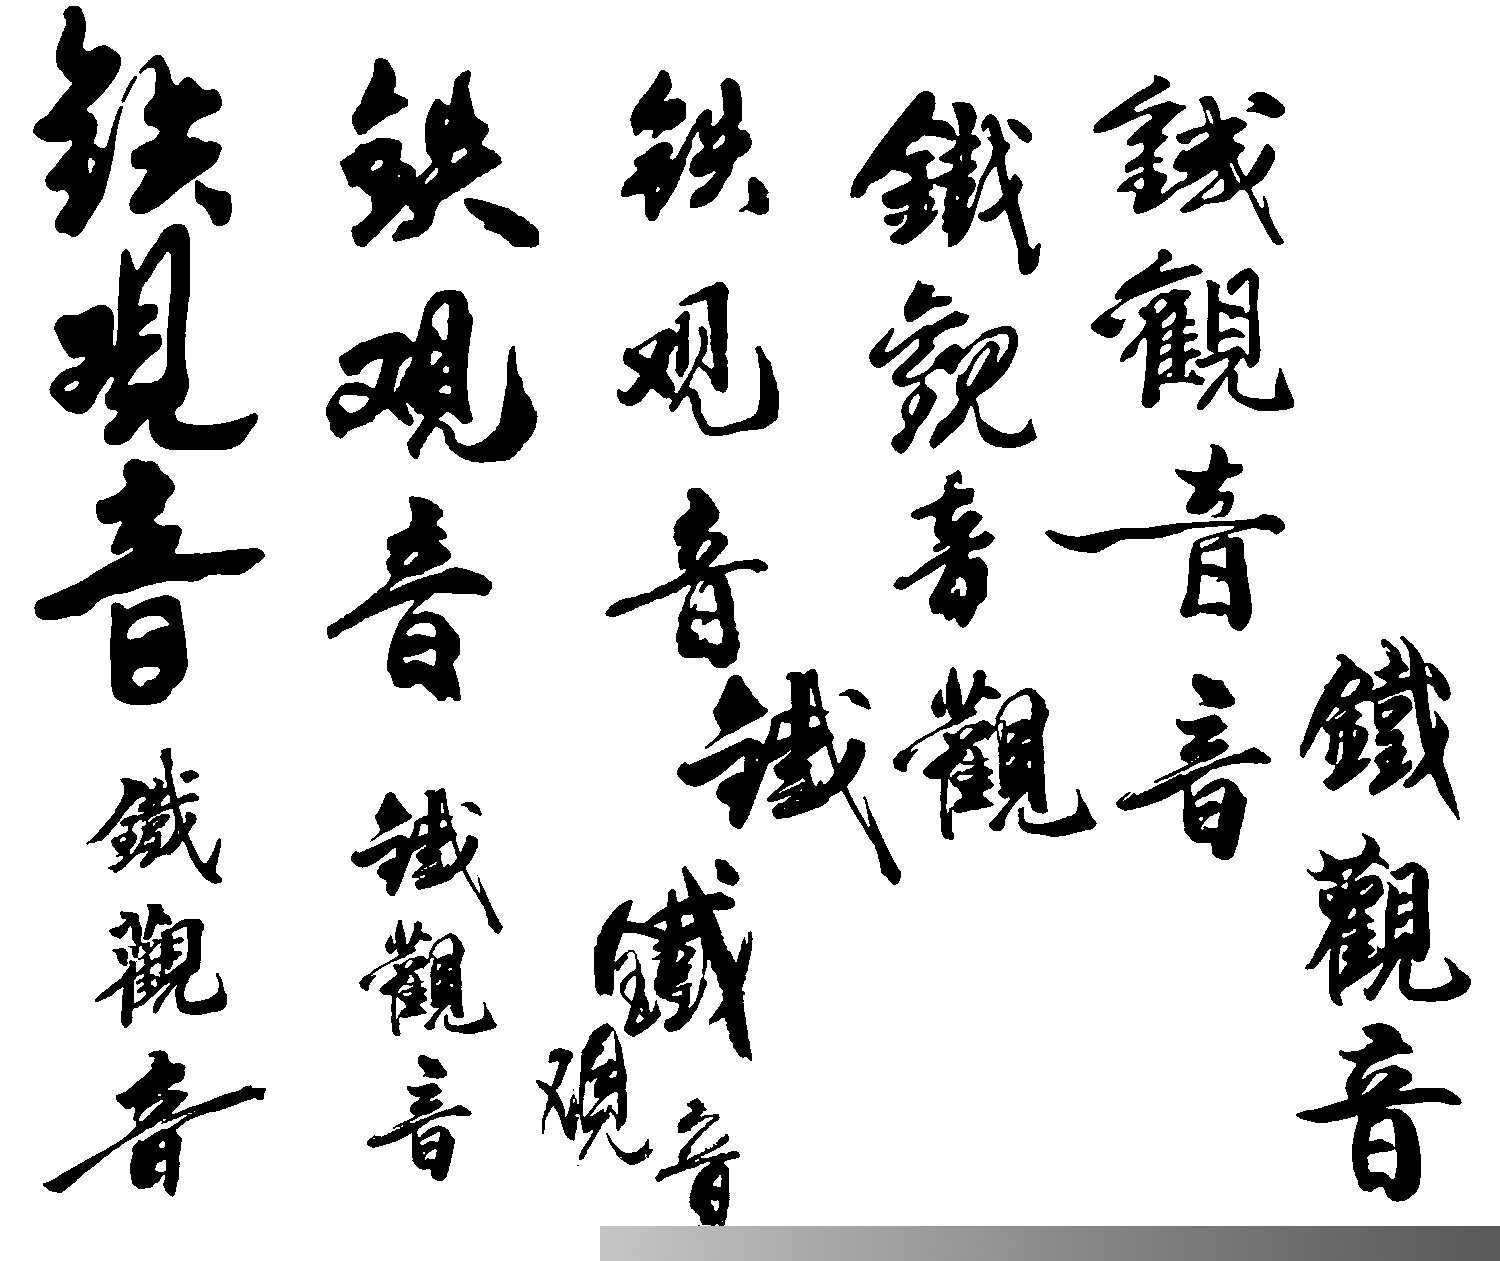 铁观音
铁观音
铁观音
鐵觀音
鐵觀音
鐵觀音
鐵觀音
鐵觀音
鐵觀音
鐵观音